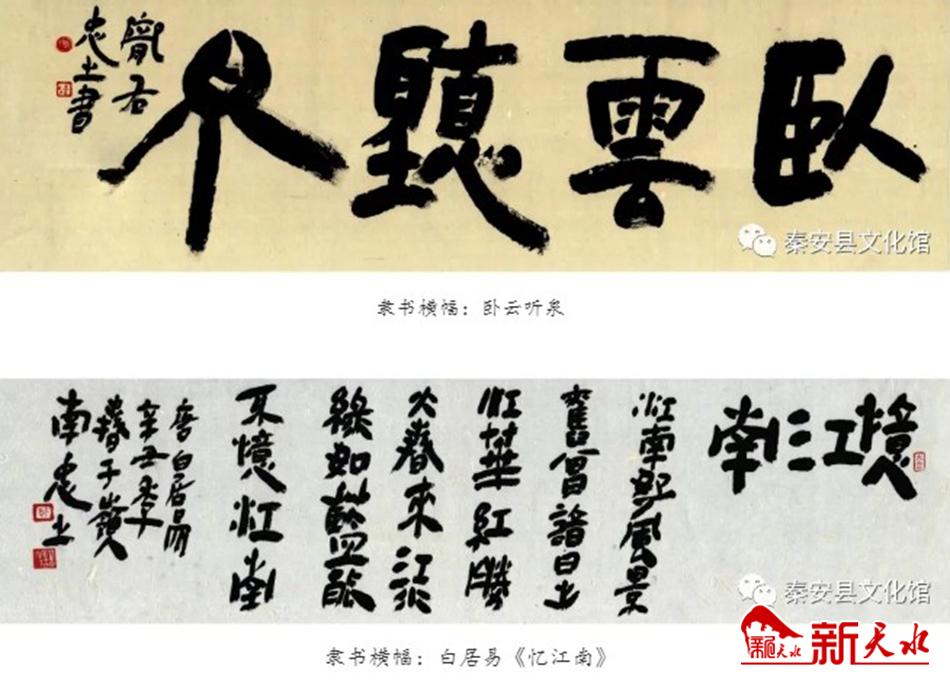 臥雲聽泉
右
忠士書
秦安县文化馆
隶书横幅：卧云听泉
憶江南
江南好風景
舊曾諳日出
江華紅勝
火春來江水
綠如藍能
不憶江南
唐白居易
辛丑季
春于嶺
南忠士
秦安县文化馆
新天水
隶书横幅：白居易《忆江南》